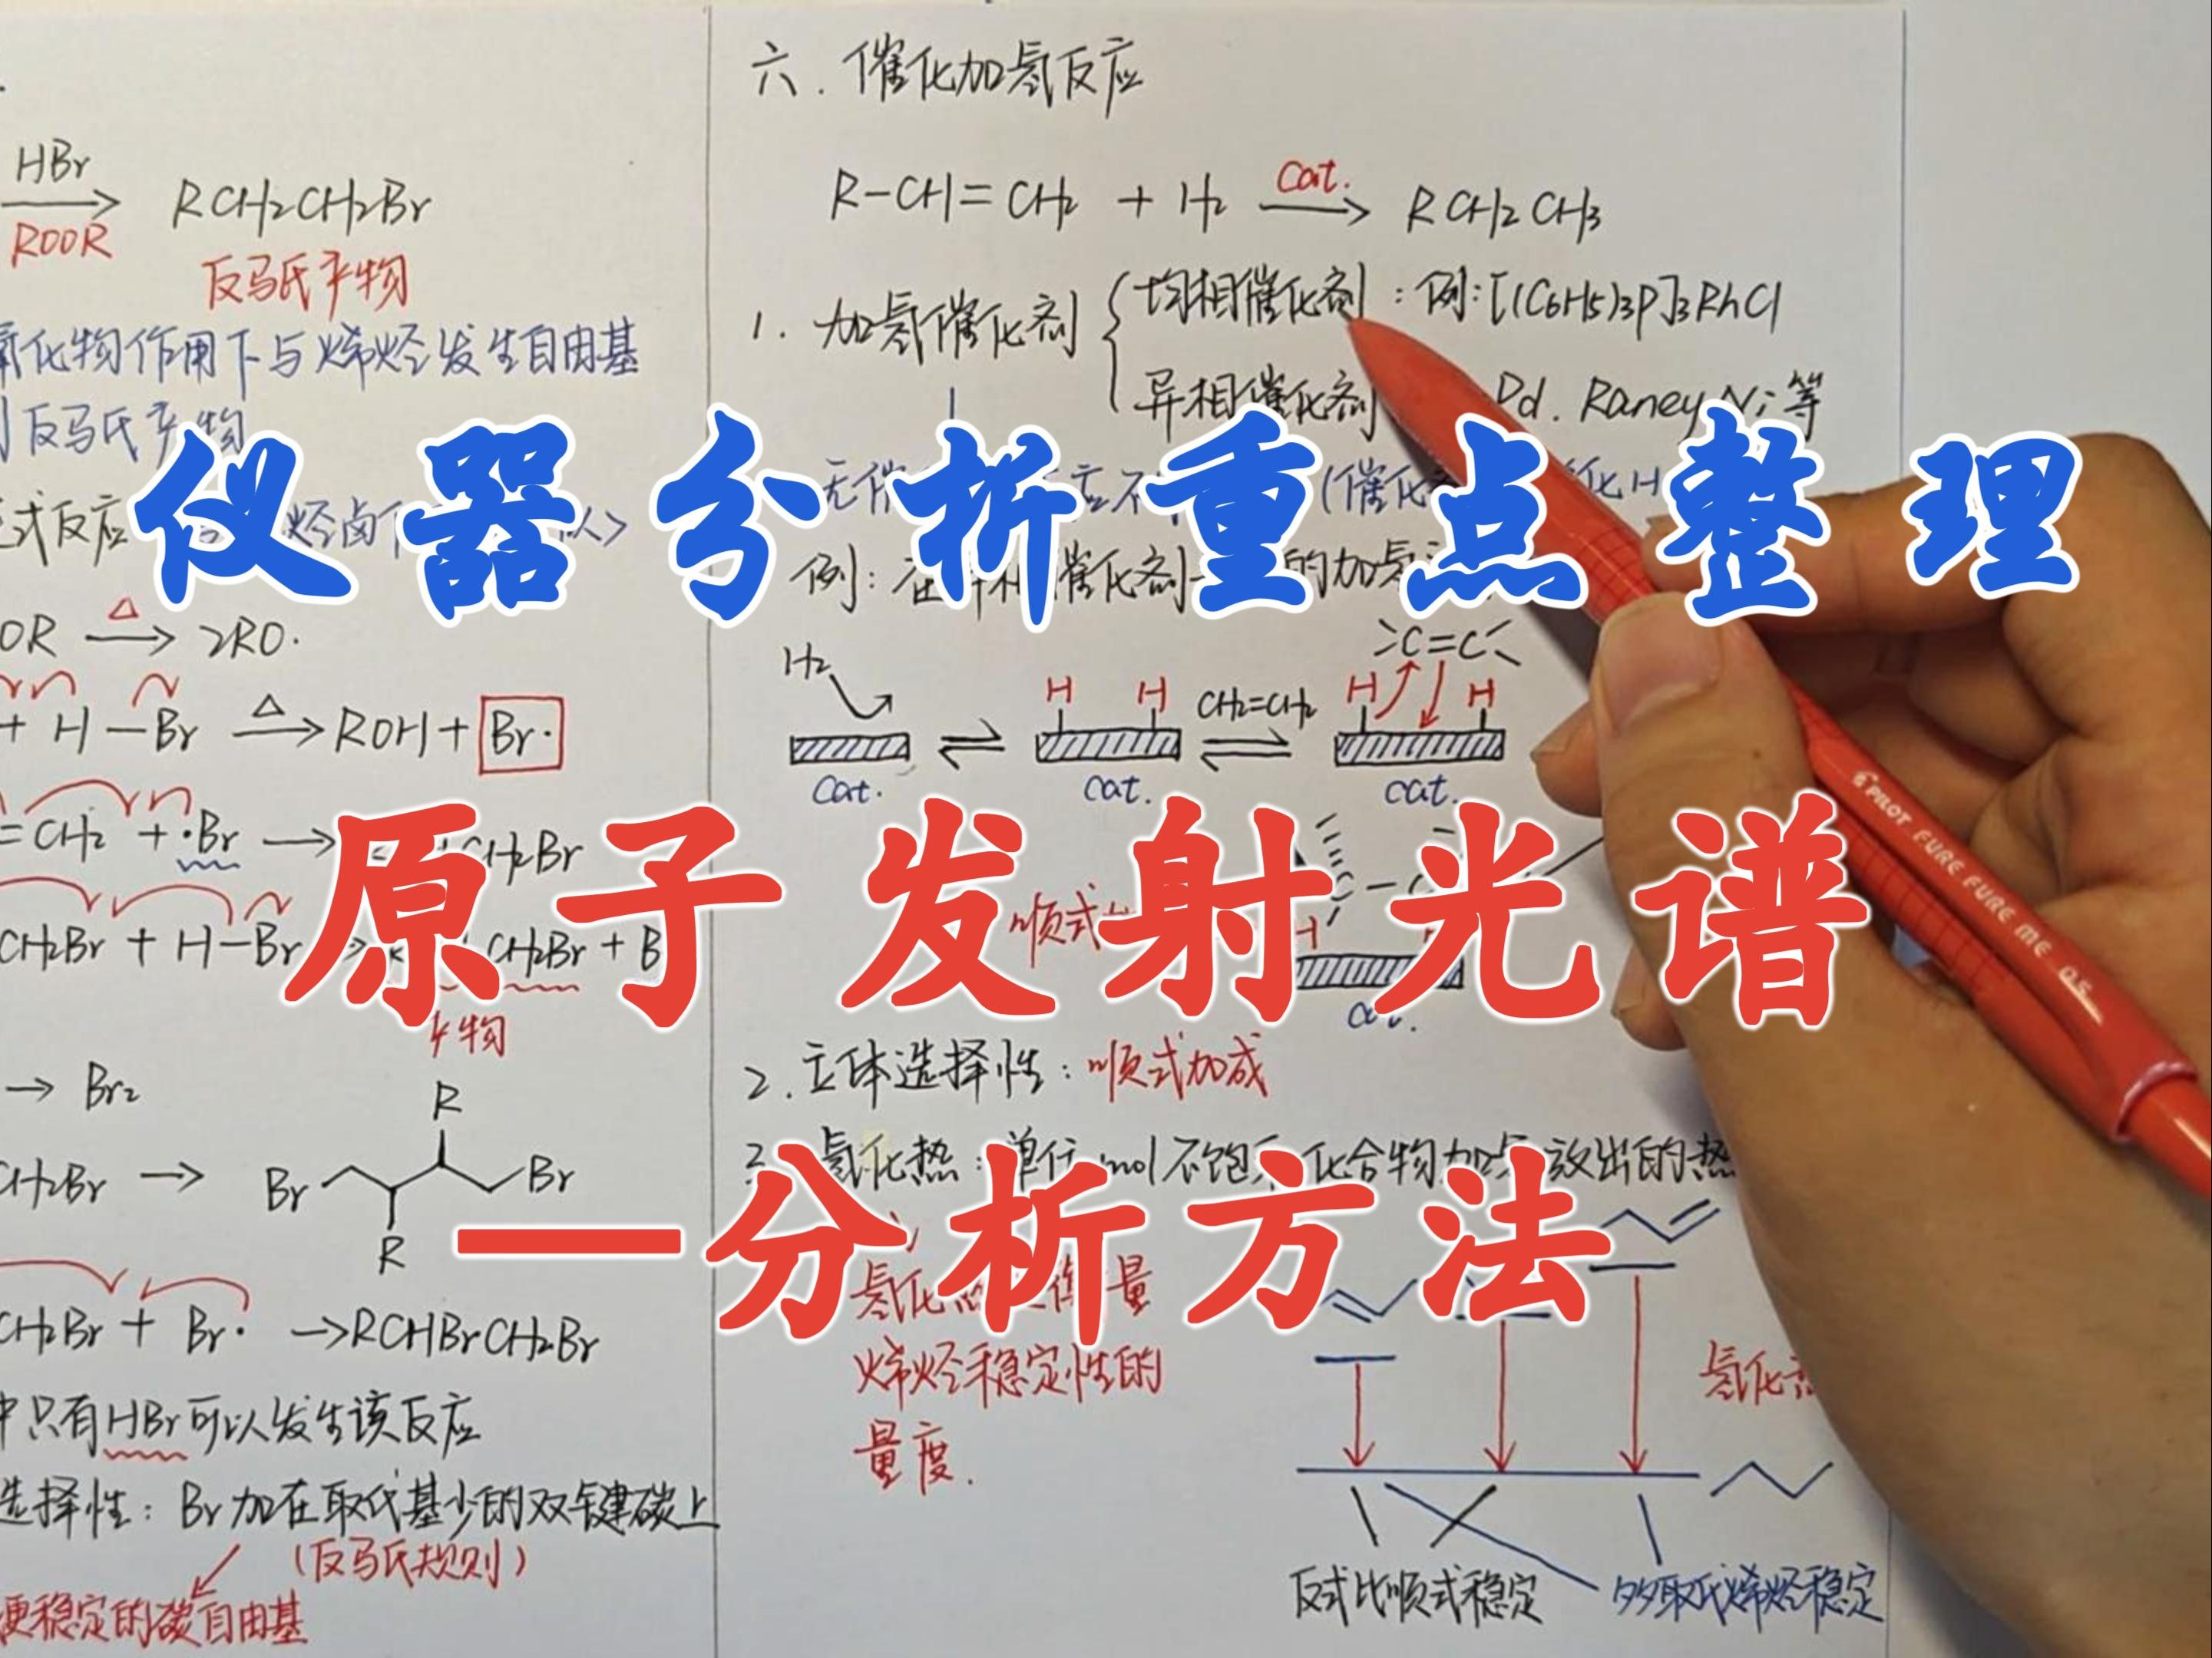 仪器分析重点整理
原子发射光谱
—分析方法
HBr
ROOR
RCH2CH2Br
反马氏产物
氧化物作用下与烯烃发生自由基
反马氏产物
式反应
OR △→ 2RO·
+ H—Br △→ ROH + Br·
=CH2 + ·Br →
CH2Br
CH2Br + H—Br
CH2Br + B
产物
→ Br2
R
CH2Br → Br Br
R
CH2Br + Br· → RCHBrCH2Br
中只有HBr可以发生该反应
选择性：Br加在取代基少的双键碳上
（反马氏规则）
更稳定的碳自由基
六．催化加氢反应
R-CH=CH2 + H2 cat.→ RCH2CH3
1．加氢催化剂
均相催化剂：例：[(C6H5)3P]3RhCl
异相催化剂 Pd．Raney Ni等
H2
H H
CH2=CH2
C=C
H H
cat. cat. cat.
顺式
2．立体选择性：顺式加成
3．氢化热：单位mol不饱和化合物加氢放出的热
烯烃稳定性的
量度．
反式比顺式稳定
多取代烯烃稳定
PILOT FURE FURE ME 0.5